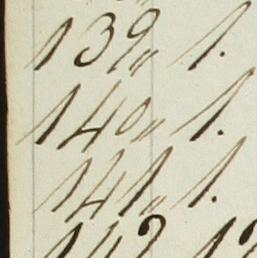 139„ 1.
140„ 1.
141„ 1.
142